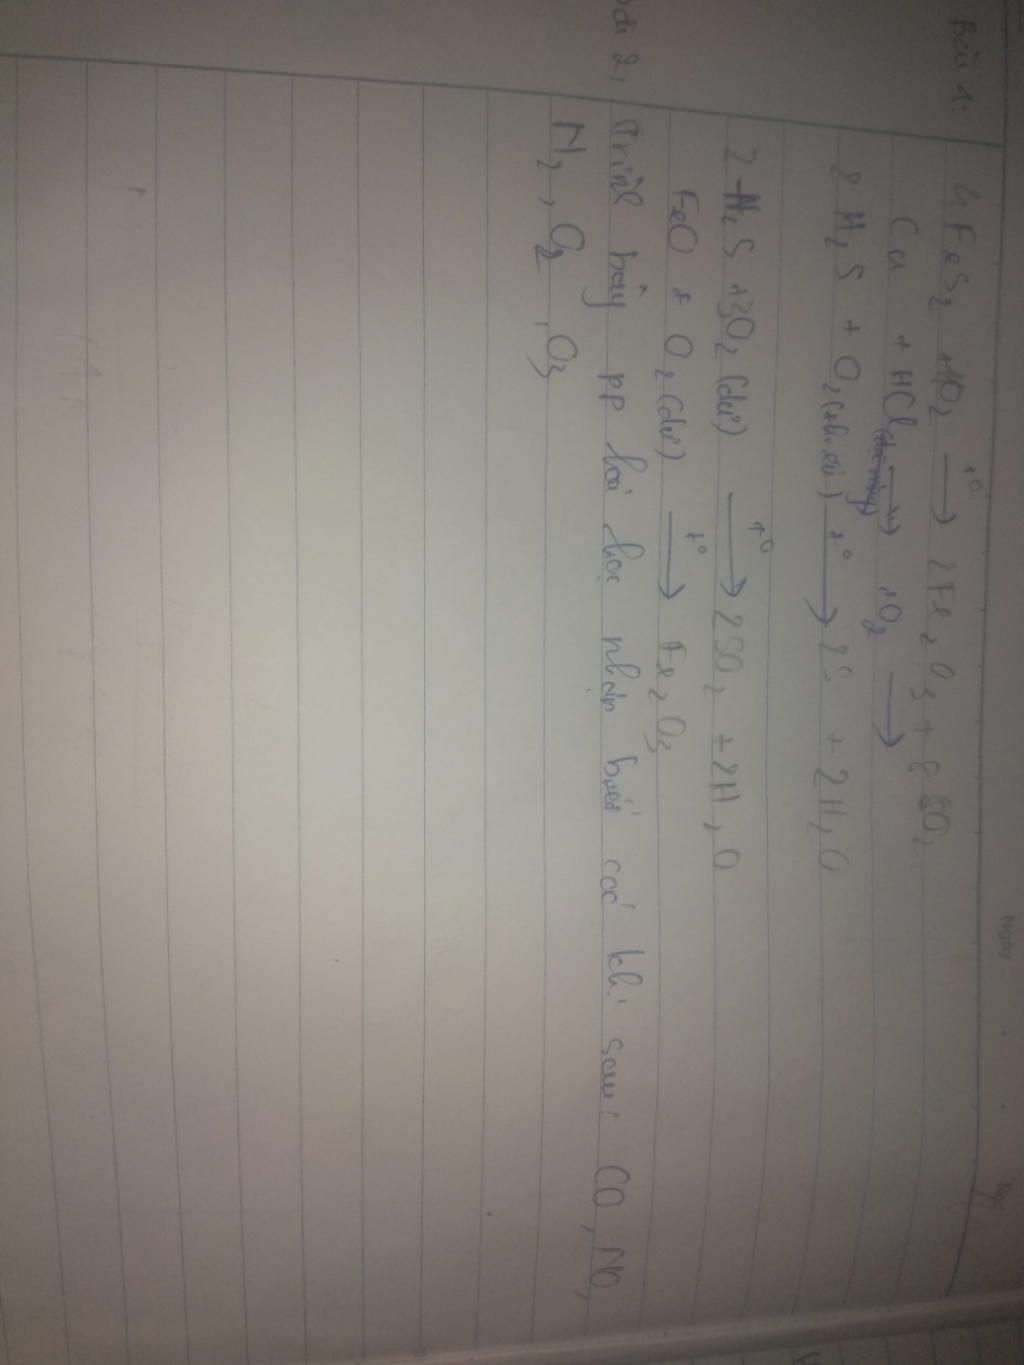 Bài 1:
4FeS₂ + 11O₂ →(t°) 2Fe₂O₃ + 8SO₂
Cu + HCl → +O₂ →
2H₂S + O₂ (thiếu) →(t°) 2S + 2H₂O
2H₂S + 3O₂ (dư) →(t°) 2SO₂ + 2H₂O
FeO + O₂ (dư) →(t°) Fe₂O₃
Bài 2, Trình bày pp hoá học nhận biết các khí sau: CO, NO,
N₂, O₂, O₃
Ngày